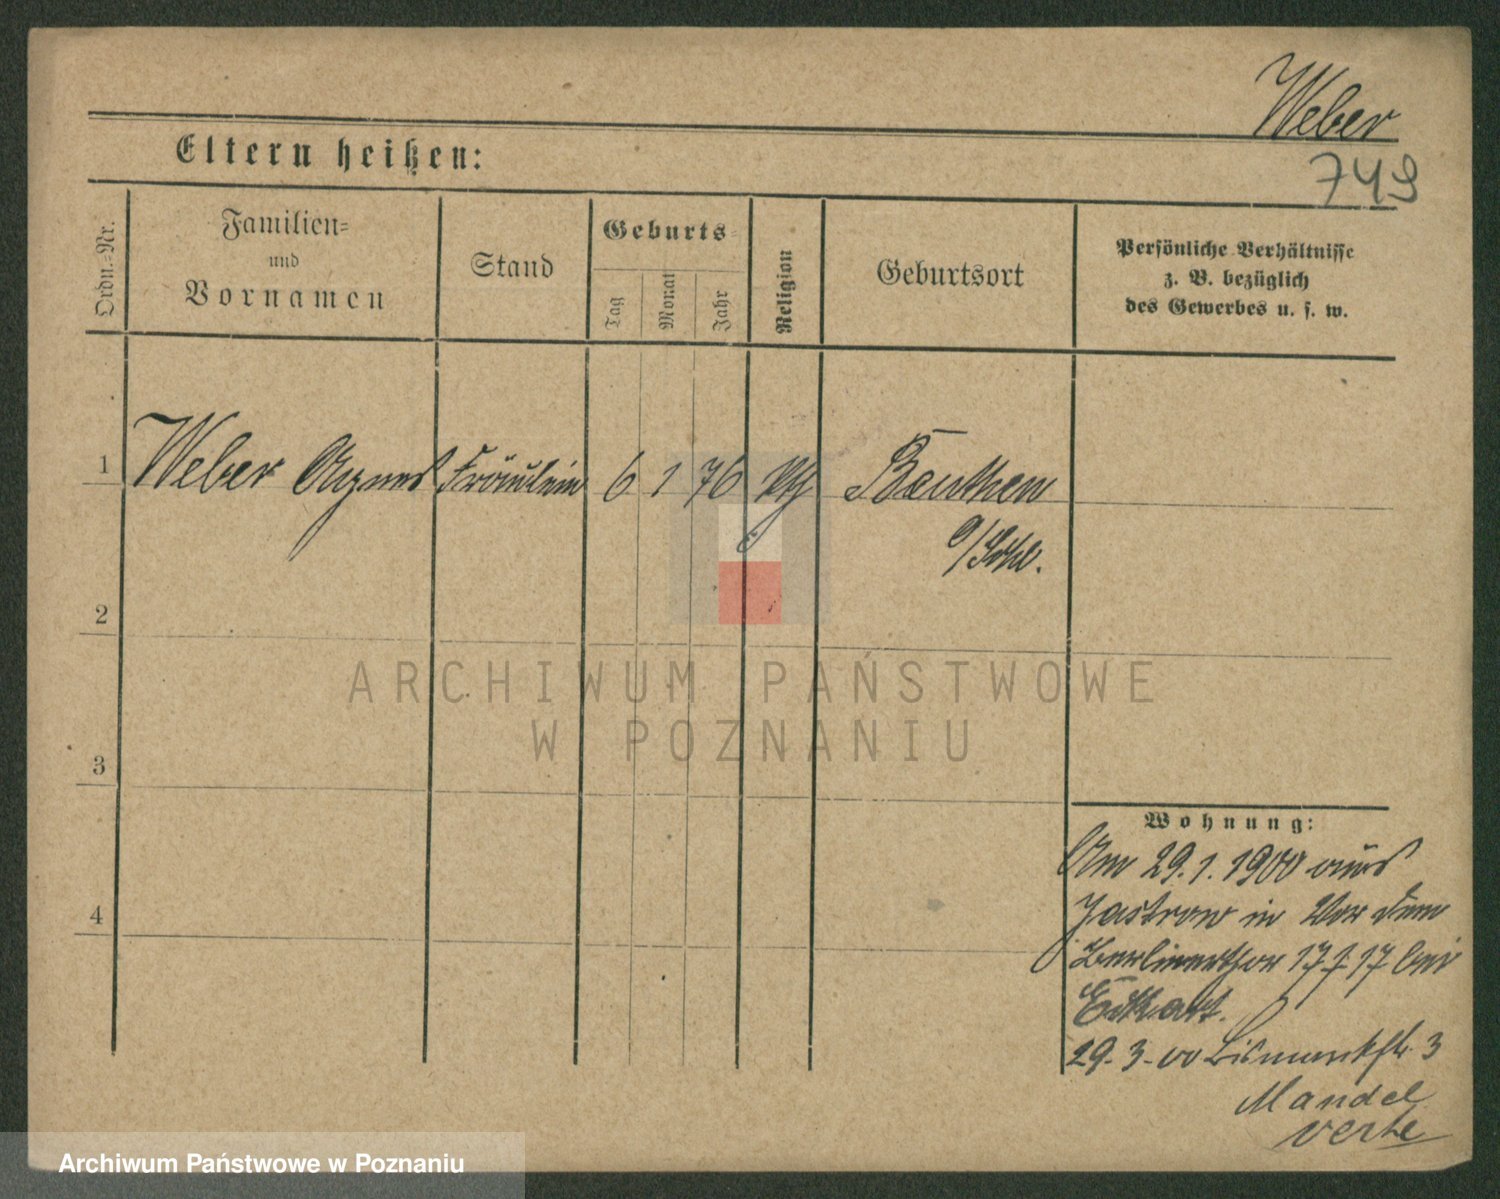 Weber
749
Eltern heißen:
Ordn.-Nr.
Familien-
und
Vornamen
Stand
Geburts-
Tag
Monat
Jahr
Religion
Geburtsort
Persönliche Verhältnisse
z. B. bezüglich
des Gewerbes u. s. w.
1
Weber Agnes Fräulein 6 1 76 Beuthen
o/Schl.
2
ARCHIWUM PAŃSTWOWE
W POZNANIU
3
Wohnung:
Am 29.1.1900 aus
Jastrow in Vor dem
4
Berlinerthor 17 17 bei
Eckart.
29.3.00 Bismarckstr. 3
Mandel
verte
Archiwum Państwowe w Poznaniu